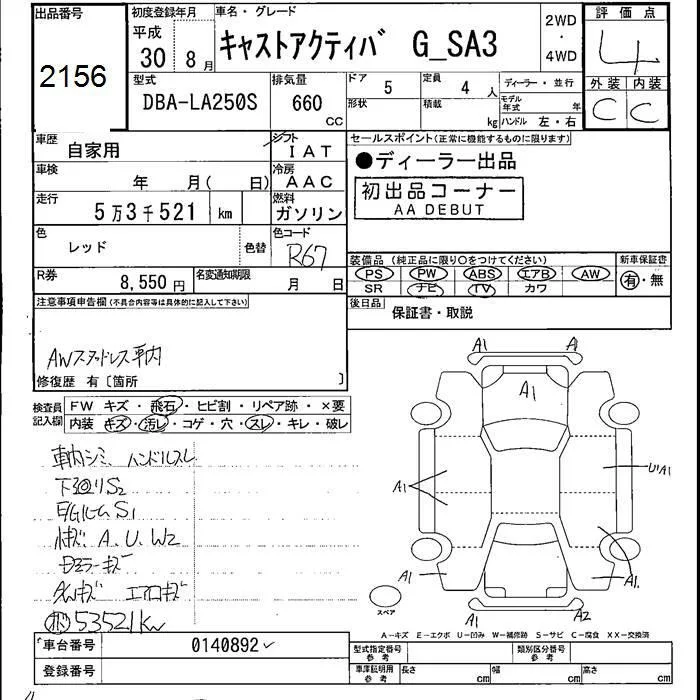 出品番号 初度登録年月 車名・グレード 2WD・4WD 評価点
2156
平成30 8月
キャストアクティバ G_SA3
4
型式 排気量 ドア 定員 ディーラー・並行 外装 内装
DBA-LA250S 660CC 5 4人
形状 積載 kg モデル年式 年 ハンドル 左・右
C C
車歴 自家用 シフト IAT
セールスポイント(正常に機能するものに限ります)
●ディーラー出品
車検 年 月( 日) 冷房 AAC
初出品コーナー
AA DEBUT
走行 5万3千521 km 燃料 ガソリン
色 レッド 色替 色コード R67
装備品 (純正品に限り○をつけてください) 新車保証書
PS PW ABS エアB AW
SR ナビ TV カワ
有・無
R券 8,550円 名変通知期限 月 日
後日品 保証書・取説
注意事項申告欄(不具合内容等は具体的に記入して下さい)
AWスタッドレス車内
修復歴 有〔箇所 〕
検査員記入欄
FW キズ・飛石・ヒビ割・リペア跡・×要
内装 キズ・汚レ・コゲ・穴・スレ・キレ・破レ
車内シミ ハンドルスレ
下廻りS2
E/G S1
小キズ A、U、W2
ドアミラーキズ
AWキズ エアロキズ
53521km
A1 A1
A1
A1
U1A1
A1 A1.
A1 A2
スペア
A-キズ E-エクボ U-凹み W-補修跡 S-サビ C-腐食 XX-交換済
車台番号 0140892
登録番号
型式指定番号 参考 類別区分番号 参考
車庫証明用 参考 長さ cm 幅 cm 高さ cm